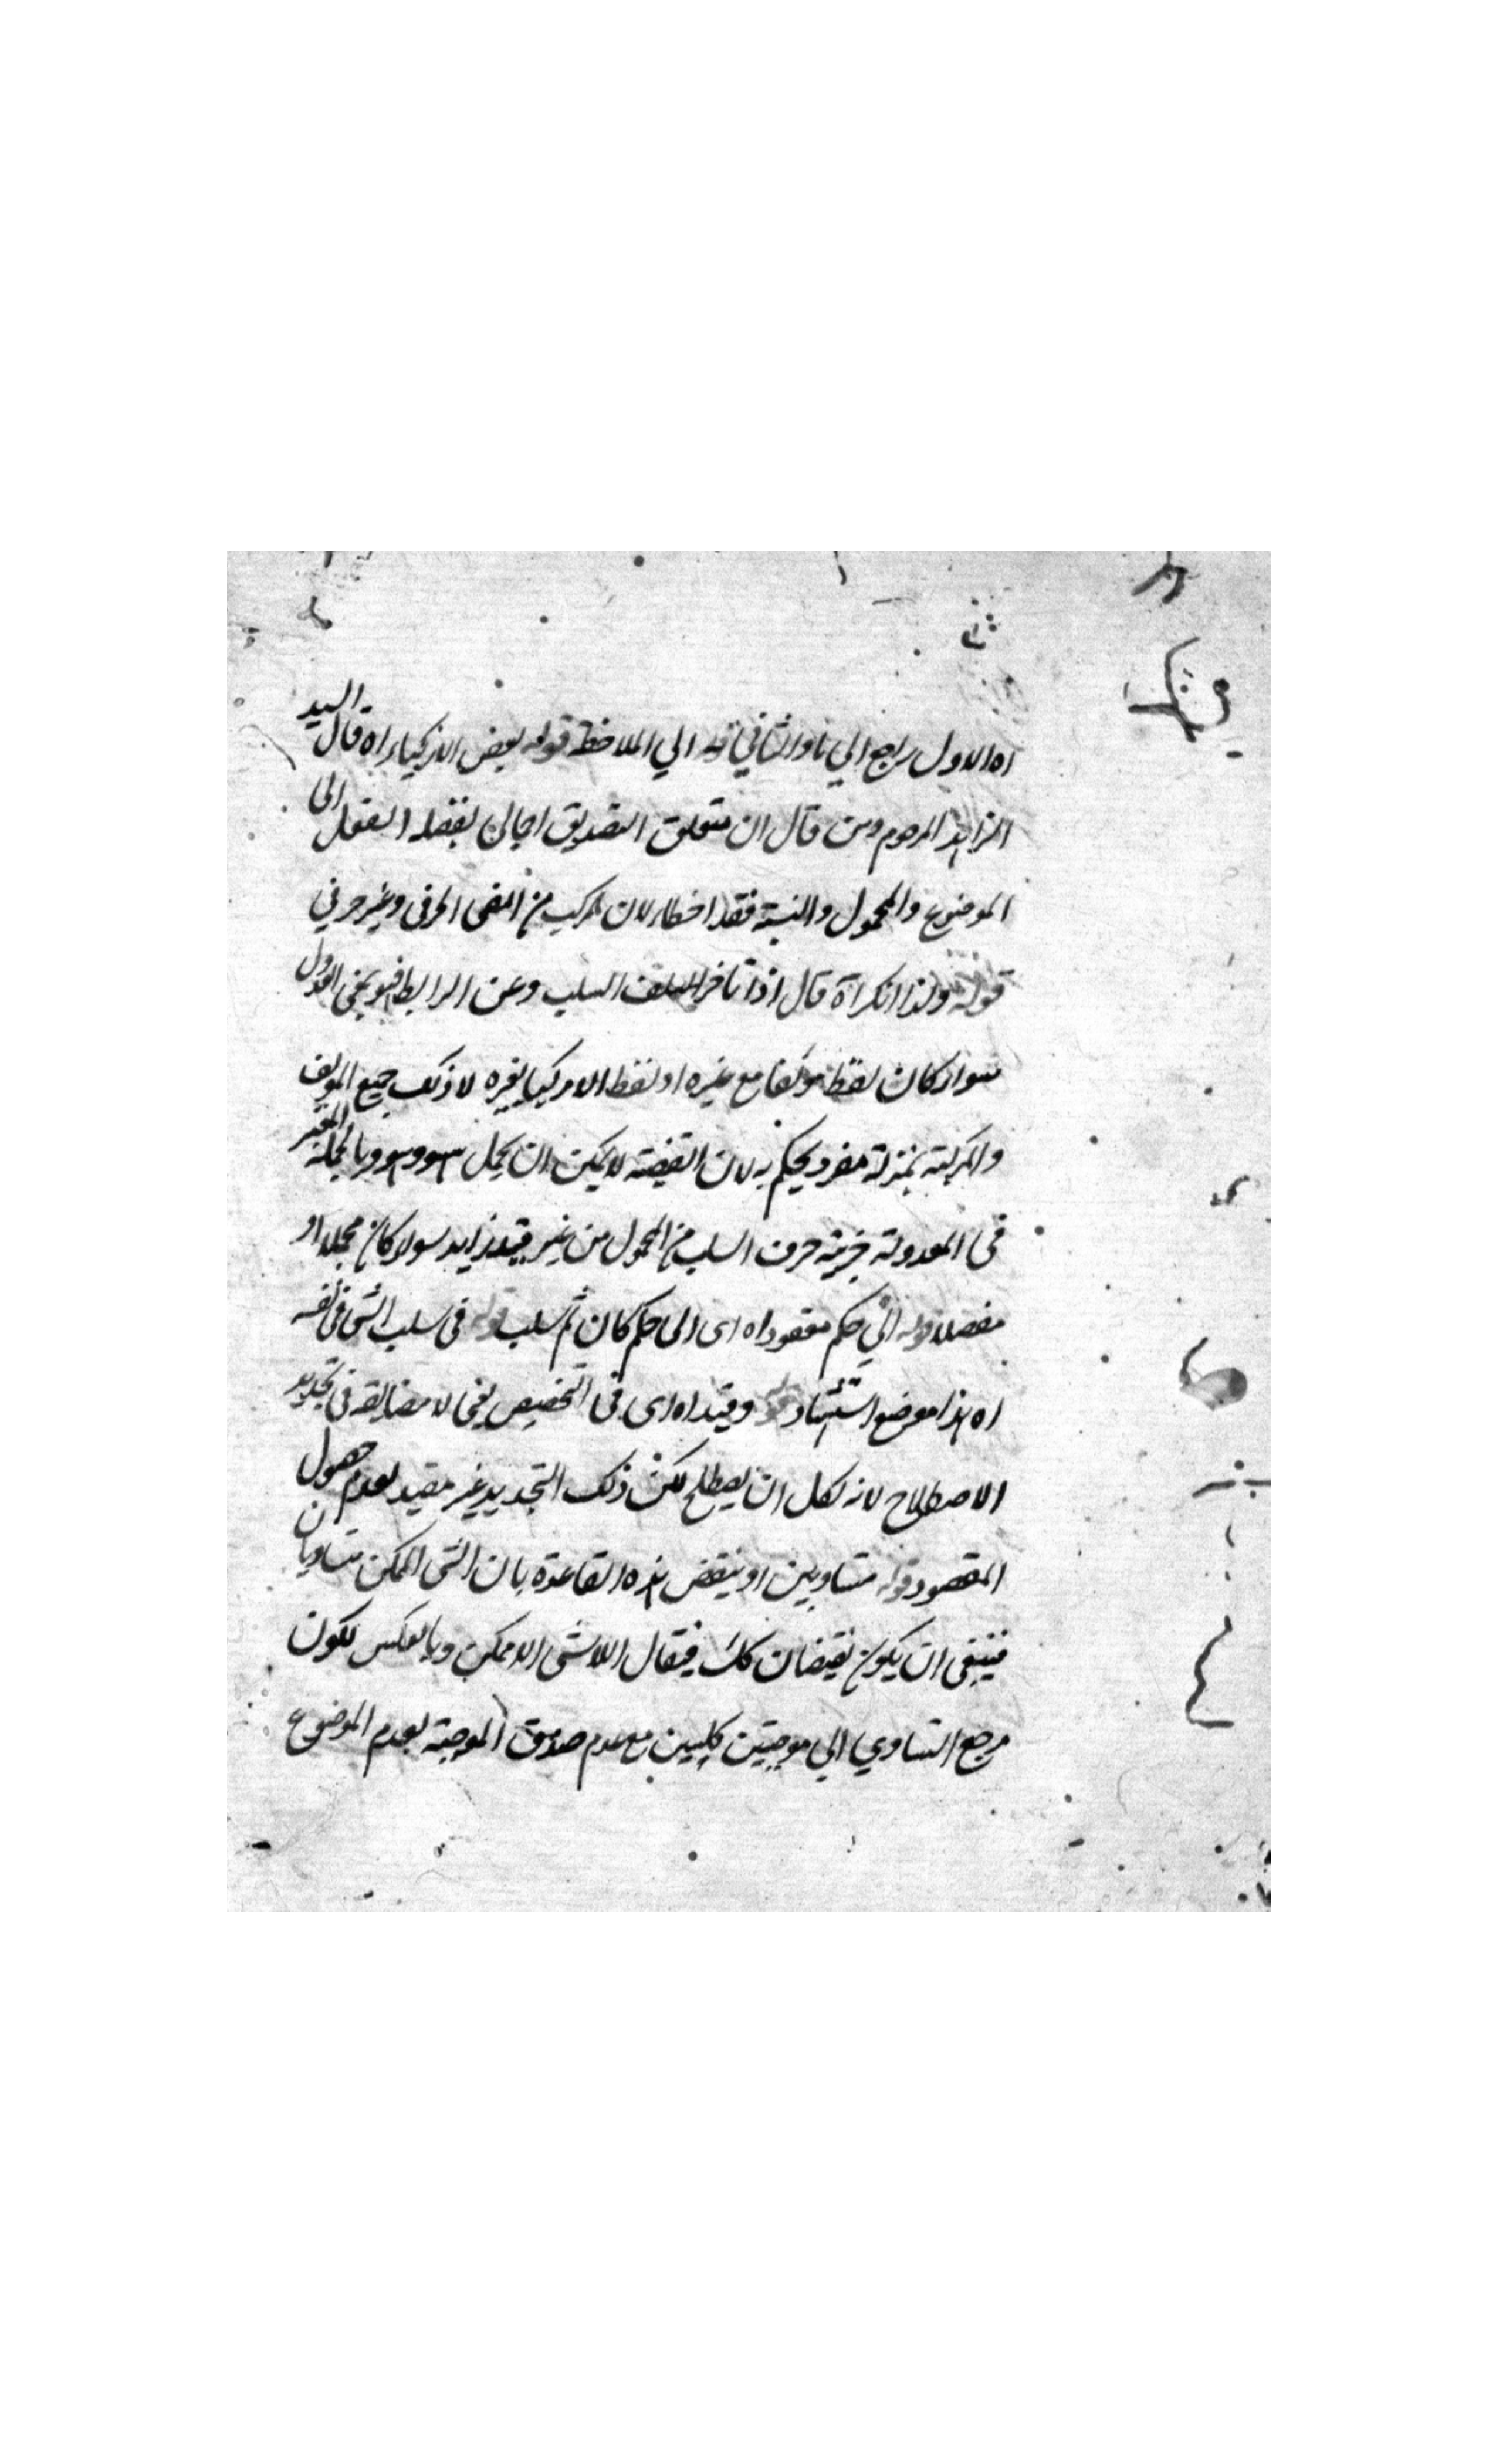 اه الاول راجع الي نا والثاني قوله الي الملاحظة قوله بعض الاذكياء اه قال السيد
الزاهد المرحوم ومن قال ان متعلق التصديق اجمالي بفضله العقل الى
الموضوع والمحمول والنسبة فقد اخطاء لان المركب من المعنى الحرفي وغير حرفي
قوله ولذا انكر اه قال اذا تاخر السلب وعن الرابطة فهو بمعنى العدول
سواء كان لفظ مؤلفا مع غيره او لفظ الامر كيا بغيره لا ذلك جميع المولف
والمركبة بمنزلة مفرد يحكم به لان القضية لا يمكن ان يحمل وبالجملة المعتبر
في المعدولة جزئية حرف السلب من المحمول من غير قيد زايد سواء كان مجملا او
مفصلا قوله الي حكم معقود اه اى الى حكم كان ثم سلب قوله في سلب الشئ في نفسه
اه هذا موضع استشهاد قوله وقيد اه اى في التخصيص يعني لا مضايقه في تجديد
الاصطلاح لانه لكل ان يصطلح لكن ذلك التجديد غير مقيد لعدم حصول
المقصود قوله متساويين او ينتقض هذه القاعدة بان الشئ الممكن متساويان
فينبغى ان يكون نقيضان كك فيقال اللاشئ اللاممكن وبالعكس لكون
مرجع التساوي الي موجبتين كليتين مع عدم صدق الموجبة لعدم الموضوع